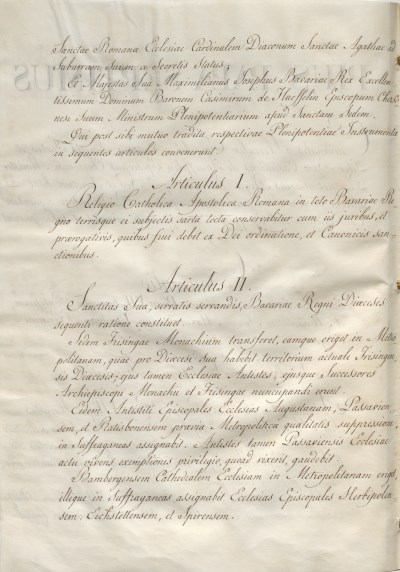 Sanctae Romanae Ecclesiae Cardinalem Diaconum Sanctae Agathae ad
Suburram, Suum a Secretis Status;
Et Majestas Sua Maximilianus Josephus Bavariae Rex Excellen
tissimum Dominum Baronem Casimirum de Haeffelin Episcopum Cherso
nesi Suum Ministrum Plenipotentiarium apud Sanctam Sedem.
Qui post sibi mutuo tradita respectivae Plenipotentiae Instrumenta
in sequentes articulos convenerunt.
Articulus I.
Religio Catholica Apostolica Romana in toto Bavariae Re-
gno terrisque ei subjectis sarta tecta conservabitur cum iis juribus, et
praerogativis, quibus frui debet ex Dei ordinatione, et Canonicis san-
ctionibus.
Articulus II.
Sanctitas Sua, servatis servandis, Bavariae Regni Dioeceses
sequenti ratione constituet
Sedem Frisingae Monachium transferet, eamque eriget in Metro
politanam, quae pro Dioecesi sua habebit territorium actuale Frisingen
sis Dioecesis; ejus tamen Ecclesiae Antistes, ejusque Successores
Archiepiscopi Monachii et Frisingae nuncupandi erunt.
Eidem Antistiti Episcopales Ecclesias Augustanam, Passavien
sem, et Ratisbonensem praevia Metropoliticae qualitatis suppressione,
in Suffraganeas assignabit. Antistes tamen Passaviensis Ecclesiae
actu vivens exemptionis privilegio, quoad vixerit, gaudebit.
Bambergensem Cathedralem Ecclesiam in Metropolitanam eriget,
illique in Suffraganeas assignabit Ecclesias Episcopales Herbipolen
sem, Eichstettensem, et Spirensem.